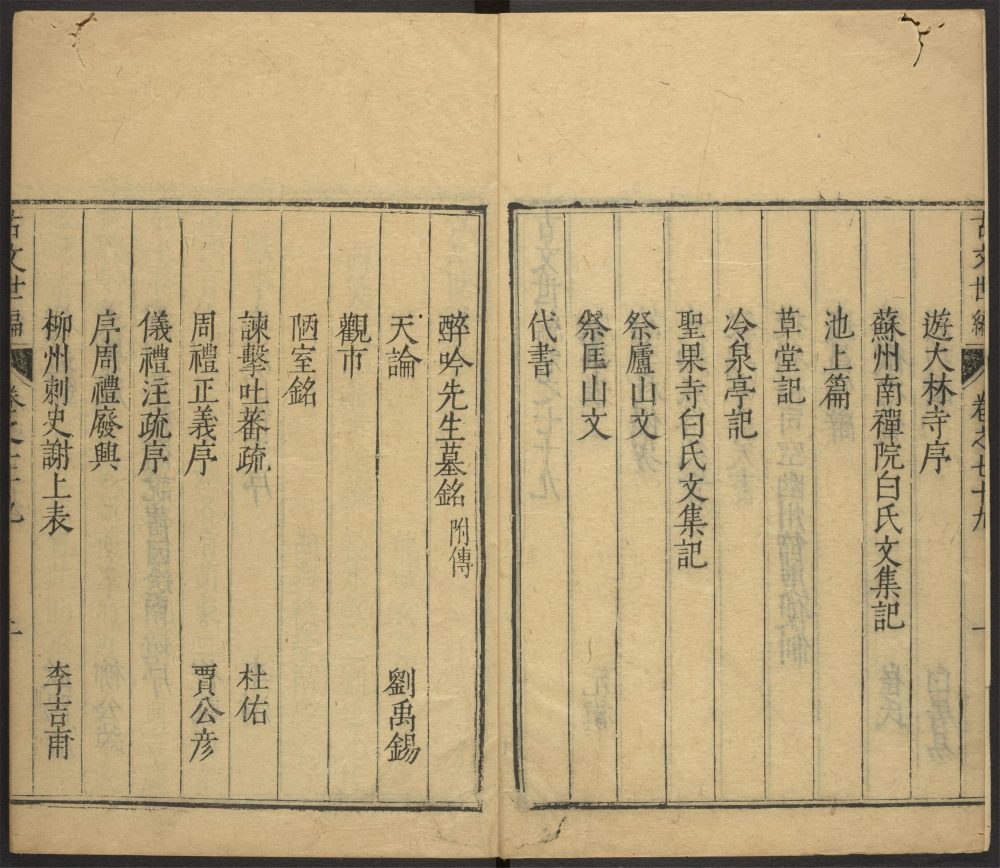 古文世編 卷之七十九 一
遊大林寺序
蘇州南禪院白氏文集記
池上篇
草堂記
冷泉亭記
聖果寺白氏文集記
祭廬山文
祭匡山文
代書
醉吟先生墓銘 附傳
天論 劉禹錫
觀市
陋室銘
諫擊吐蕃疏 杜佑
周禮正義序 賈公彥
儀禮注疏序
序周禮廢興
柳州刺史謝上表 李吉甫
古文世編